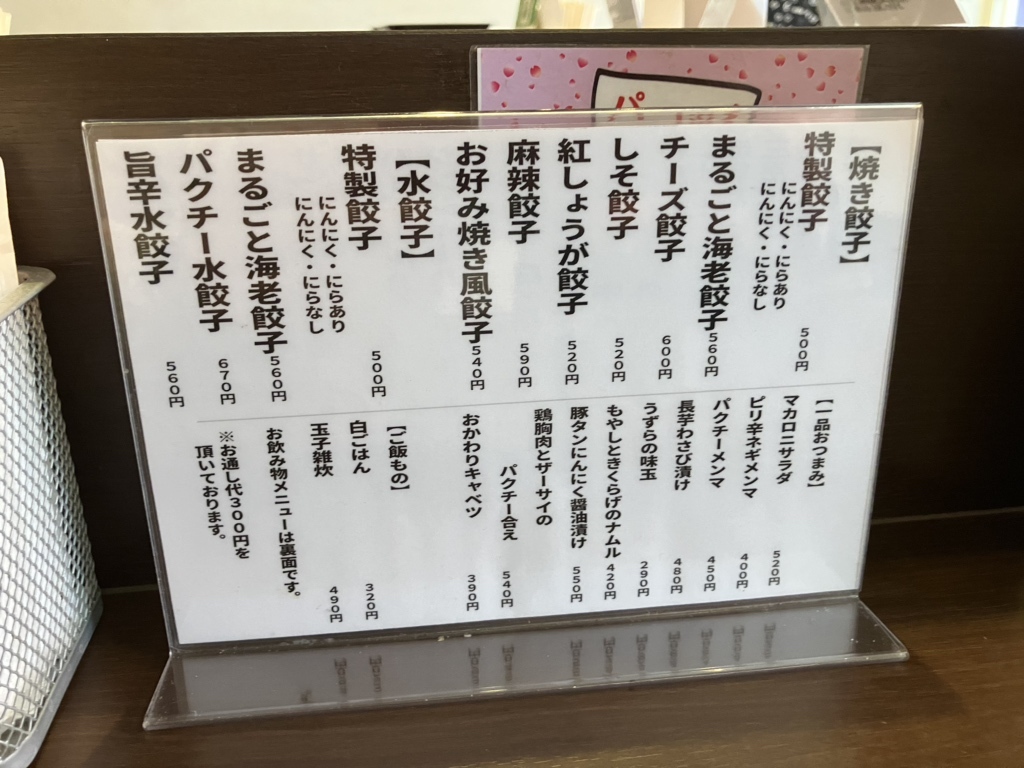 【焼き餃子】
特製餃子
にんにく・にらあり
にんにく・にらなし
500円
まるごと海老餃子 560円
チーズ餃子 600円
しそ餃子 520円
紅しょうが餃子 520円
麻辣餃子 590円
お好み焼き風餃子 540円
【水餃子】
特製餃子 500円
にんにく・にらあり
にんにく・にらなし
まるごと海老餃子 560円
パクチー水餃子 670円
旨辛水餃子 560円
【一品おつまみ】
マカロニサラダ 520円
ピリ辛ネギメンマ 400円
パクチーメンマ 450円
長芋わさび漬け 480円
うずらの味玉 290円
もやしときくらげのナムル 420円
豚タンにんにく醤油漬け 550円
鶏胸肉とザーサイの
パクチー合え 540円
おかわりキャベツ 390円
【ご飯もの】
白ごはん 320円
玉子雑炊 490円
お飲み物メニューは裏面です。
※お通し代300円を
頂いております。